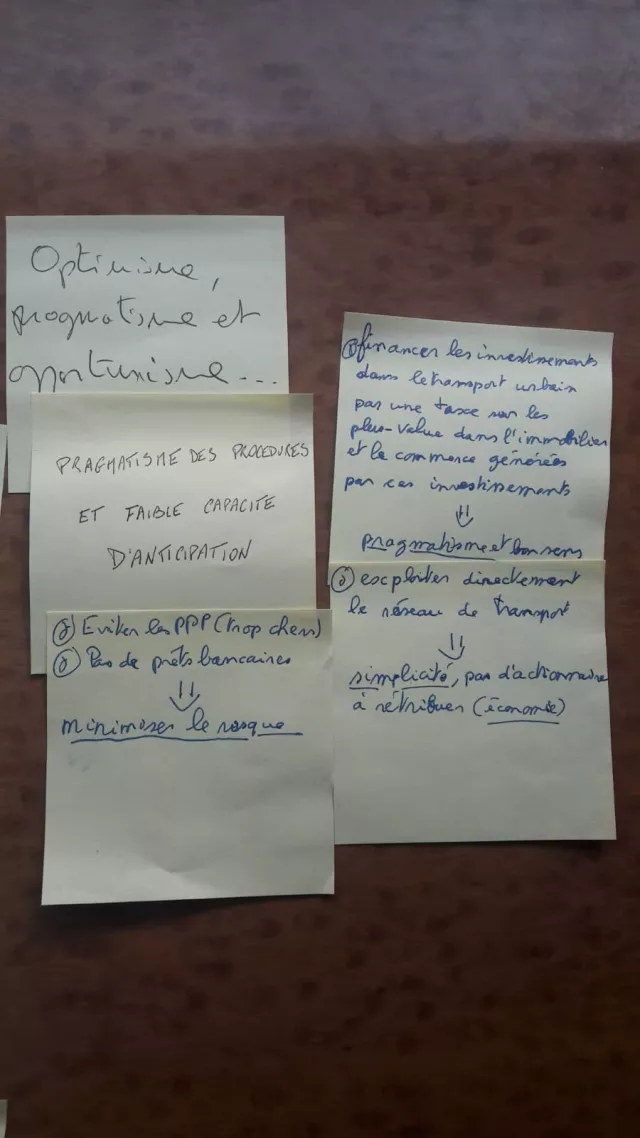 Optimisme,
pragmatisme et
opportunisme...
PRAGMATISME DES PROCEDURES
ET FAIBLE CAPACITE
D'ANTICIPATION
Eviter les PPP (trop chers)
Pas de prêts bancaires
⇓
minimiser le risque
① financer les investissements
dans le transport urbain
par une taxe sur les
plus-value dans l'immobilier
et le commerce générées
par ces investissements
⇓
pragmatisme et bon sens
exploiter directement
le réseau de transport
⇓
simplicité, pas d'actionnaire
à rétribuer (économie)